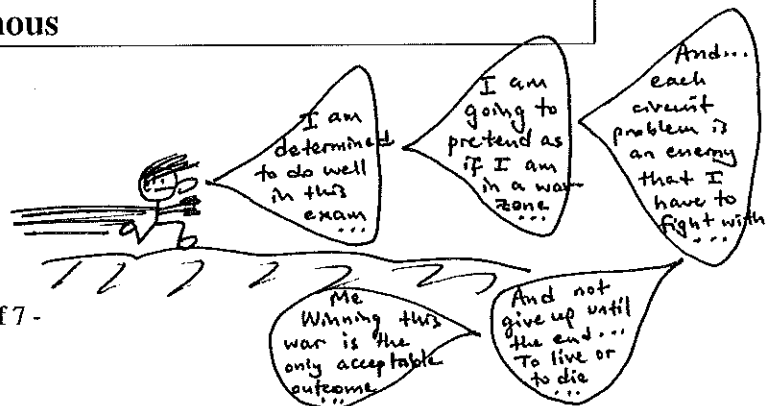 nous
I am
determined
to do well
in this
exam
...
I am
going to
pretend as
if I am
in a war
zone
...
And...
each
circuit
problem is
an enemy
that I
have to
fight with
...
And not
give up until
the end...
To live or
to die
...
Me
Winning this
war is the
only acceptable
outcome
...
f 7 -